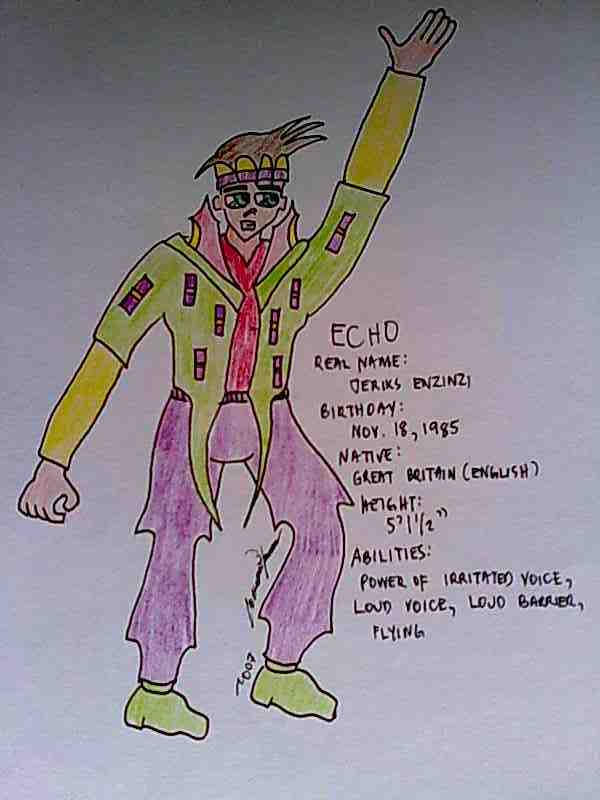 ECHO
REAL NAME:
JERIKS ENZINZI
BIRTHDAY:
NOV. 18, 1985
NATIVE:
GREAT BRITAIN (ENGLISH)
HEIGHT:
5'1 1/2"
ABILITIES:
POWER OF IRRITATED VOICE,
LOUD VOICE, LOUD BARRIER,
FLYING
2007